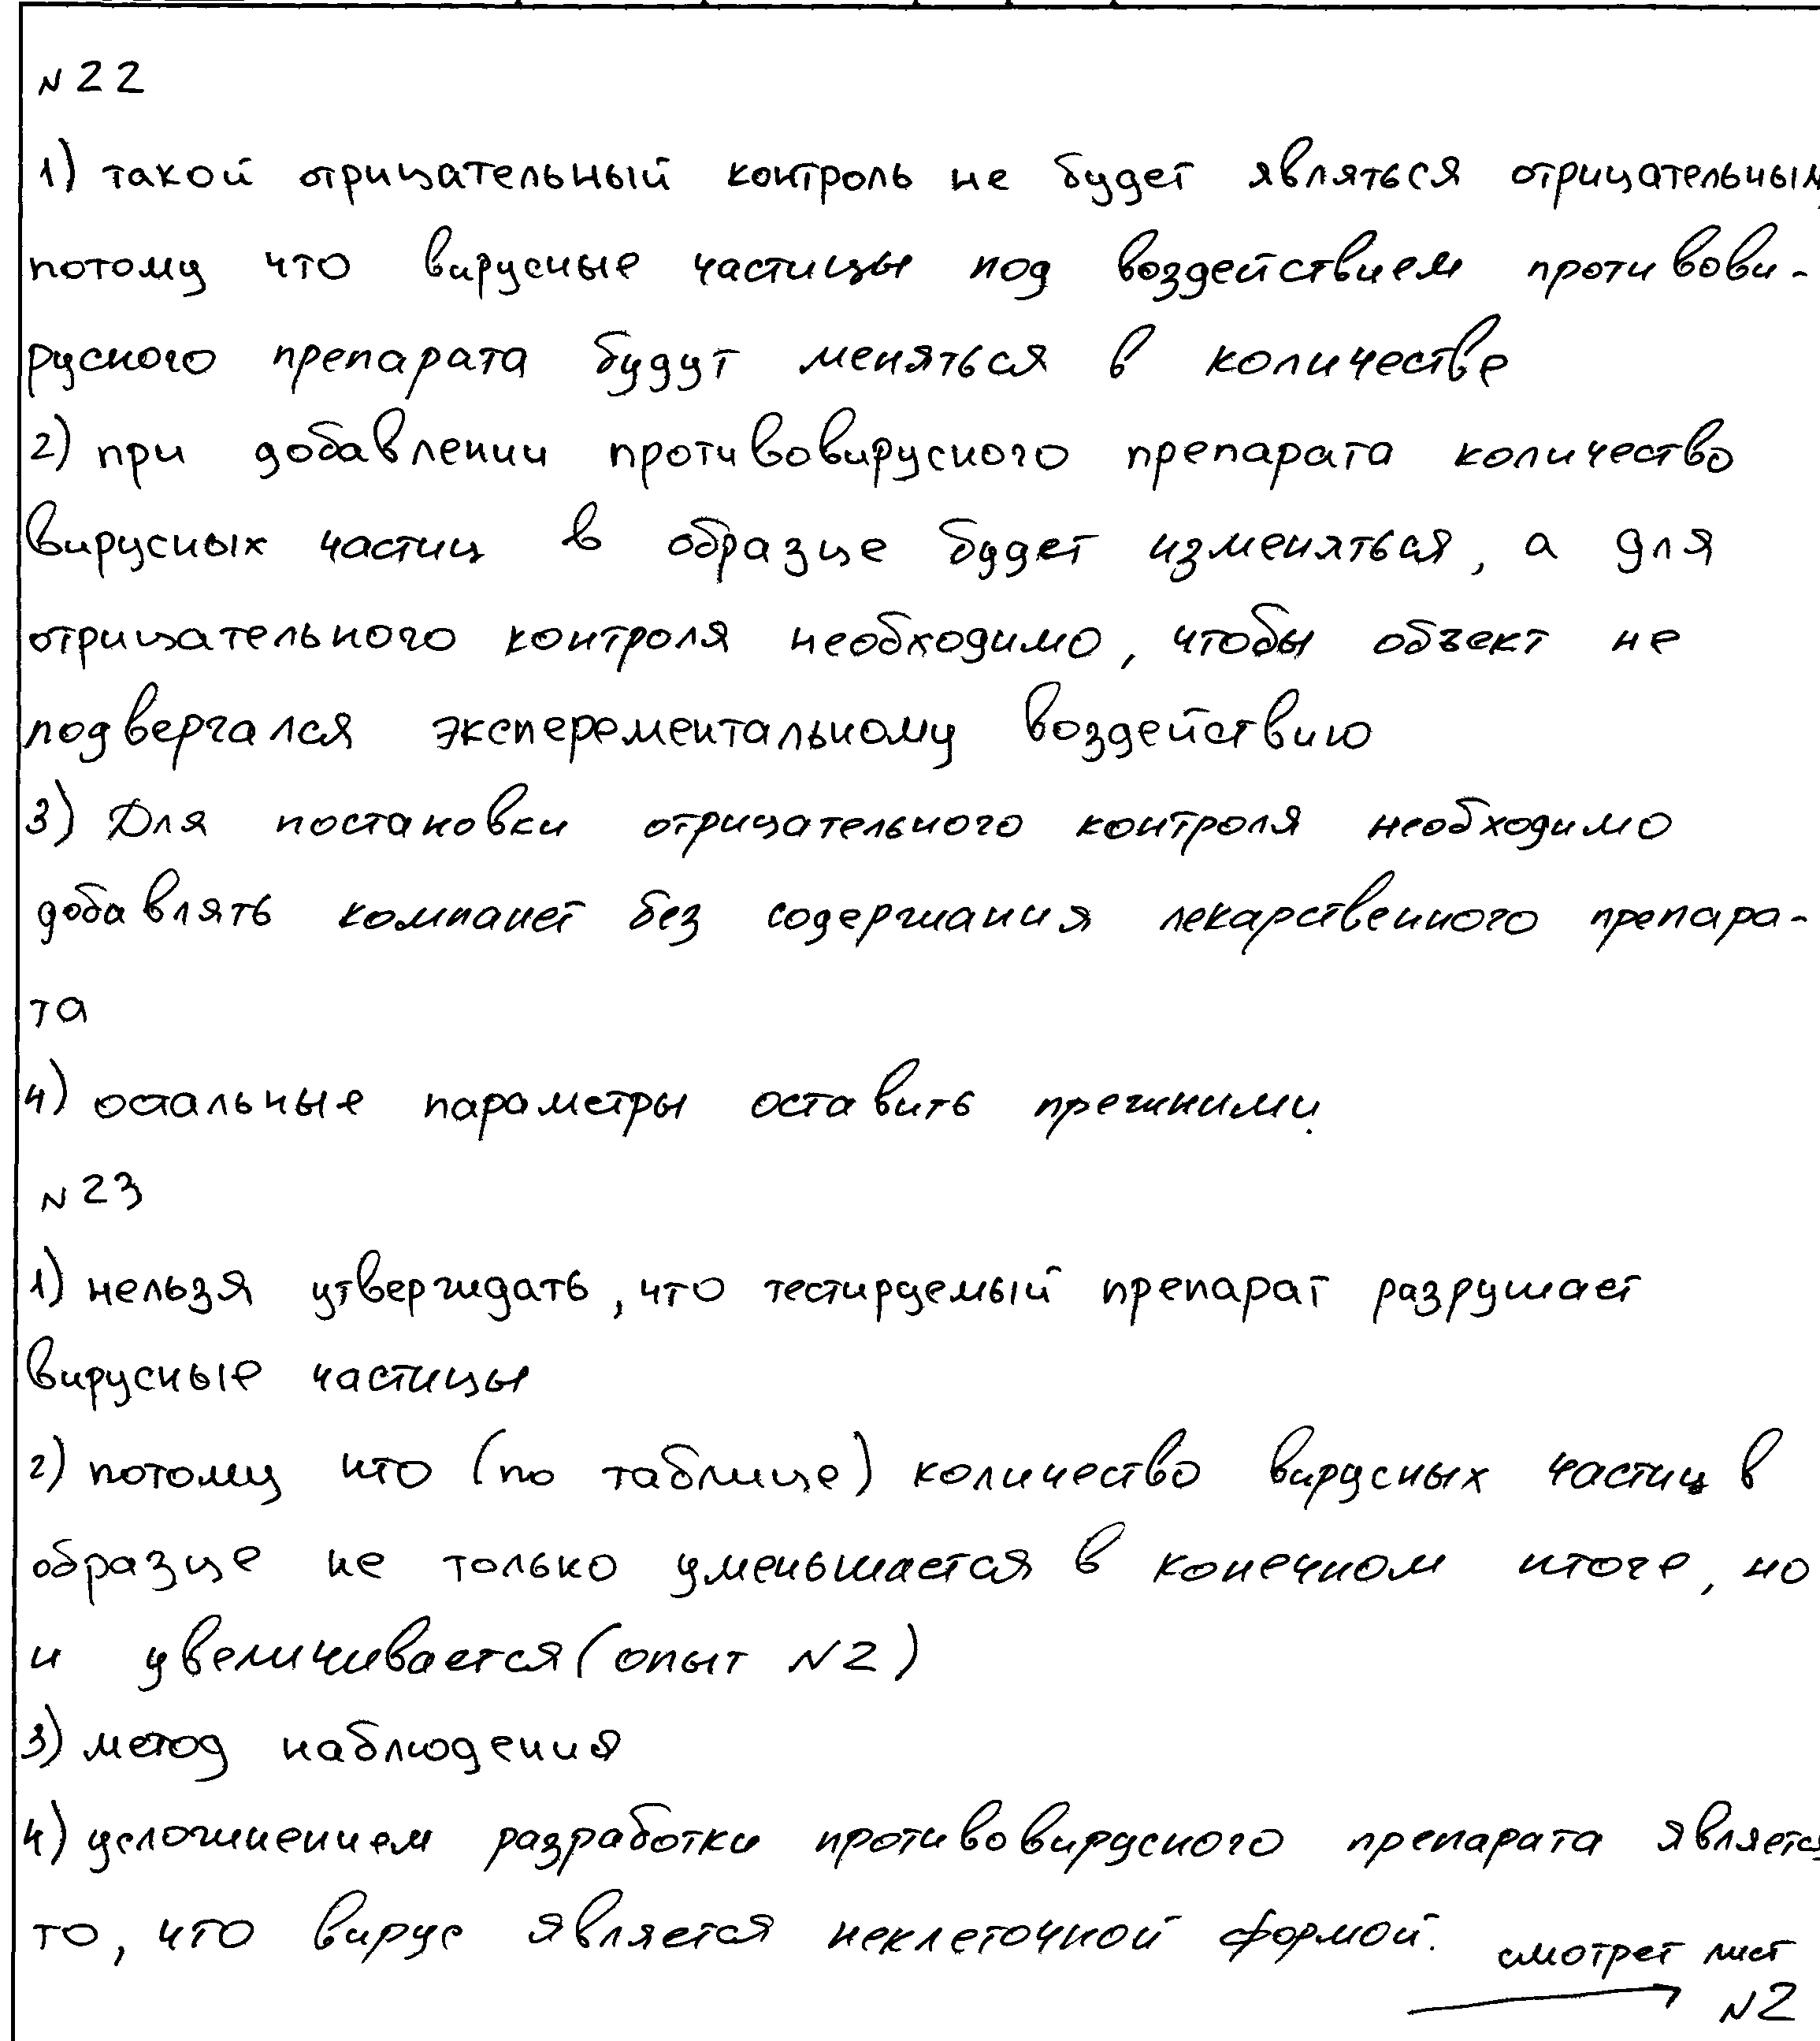 N22
1) такой отрицательный контроль не будет являться отрицательным,
потому что вирусные частицы под воздействием противови-
русного препарата будут меняться в количестве
2) при добавлении противовирусного препарата количество
вирусных частиц в образце будет изменяться, а для
отрицательного контроля необходимо, чтобы объект не
подвергался эксперементальному воздействию
3) Для постановки отрицательного контроля необходимо
добавлять компанет без содержания лекарственного препара-
та
4) остальные параметры оставить прежними.
N23
1) нельзя утверждать, что тестируемый препарат разрушает
вирусные частицы
2) потому что (по таблице) количество вирусных частиц в
образце не только уменьшается в конечном итоге, но
и увеличивается (опыт N2)
3) метод наблюдения
4) усложнением разработки противовирусного препарата является
то, что вирус является неклеточной формой.
смотрет лист
N2